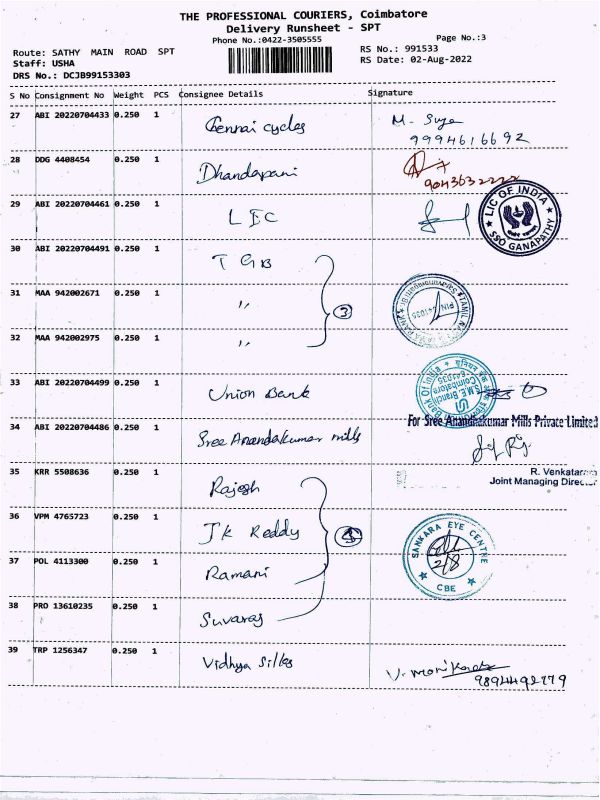 THE PROFESSIONAL COURIERS, Coimbatore
Delivery Runsheet - SPT
Phone No.:0422-3505555
Page No.:3
Route: SATHY MAIN ROAD SPT
RS No.: 991533
Staff: USHA
RS Date: 02-Aug-2022
DRS No.: DCJB99153303
S No Consignment No Weight PCS Consignee Details Signature
27 ABI 20220704433 0.250 1 Chennai cycles M. Suja
9994616692
28 DDG 4408454 0.250 1 Dhandapani
29 ABI 20220704461 0.250 1 LIC
LIC OF INDIA
SSO GANAPATHY
30 ABI 20220704491 0.250 1 T GB
31 MAA 942002671 0.250 1 ,, 3
32 MAA 942002975 0.250 1 ,,
33 ABI 20220704499 0.250 1 Union Bank
S.M.E. Branch
Coimbatore
641035
34 ABI 20220704486 0.250 1 Sree Anandakumar mills
For Sree Anandhakumar Mills Private Limited
35 KRR 5508636 0.250 1 Rajesh
R. Venkatara
Joint Managing Director
36 VPM 4765723 0.250 1 J.K Reddy
SANKARA EYE CENTRE
2/8
CBE
37 POL 4113300 0.250 1 Ramani
38 PRO 13610235 0.250 1 Suvaraj
39 TRP 1256347 0.250 1 Vidhya Silks